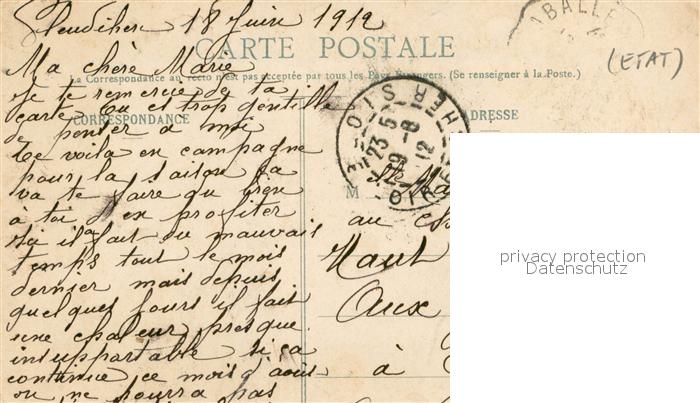 Pleudihen 18 Juin 1912
CARTE POSTALE
(ETAT)
Ma chère Marie
La Correspondance au recto n'est pas acceptée par tous les Pays Étrangers. (Se renseigner à la Poste.)
Je te remercie de ta
carte tu es trop gentille
CORRESPONDANCE
ADRESSE
de penser a moi
te voila en campagne
pour la saison ça
va te faire du bien
à toi d'en profiter
ici il a fait du mauvais
temps tout le mois
dernier mais depuis
quelques jours il fait
une chaleur presque
insupportable si ça
continue ce mois d'aout
on ne pourra pas
M
au
Haut
Aux
à
privacy protection
Datenschutz